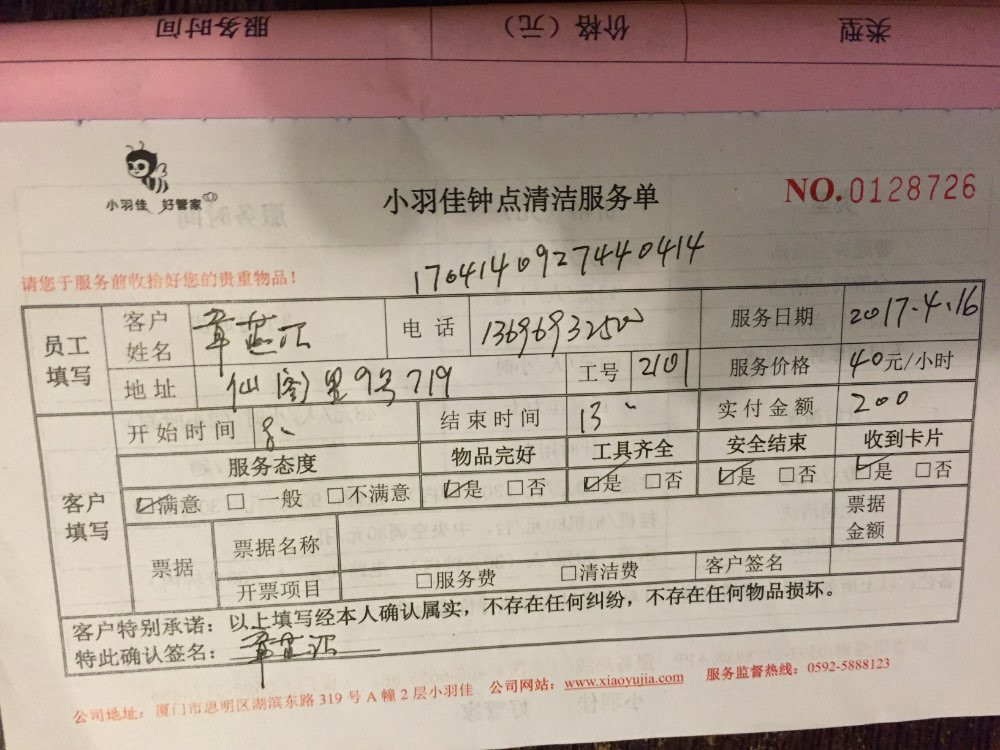 服务时间 价格（元） 类型
小羽佳 好管家
小羽佳钟点清洁服务单
NO.0128726
请您于服务前收拾好您的贵重物品！
1704140927440414
员工填写 客户姓名 章蓝 电话 13696932500 服务日期 2017.4.16
地址 仙阁里9号719 工号 2101 服务价格 40元/小时
开始时间 8 结束时间 13 实付金额 200
客户填写 服务态度 物品完好 工具齐全 安全结束 收到卡片
☑满意 □一般 □不满意 ☑是 □否 ☑是 □否 ☑是 □否 ☑是 □否
票据 票据名称 票据金额
开票项目 □服务费 □清洁费 客户签名
客户特别承诺：以上填写经本人确认属实，不存在任何纠纷，不存在任何物品损坏。
特此确认签名：章蓝
公司地址：厦门市思明区湖滨东路319号A幢2层小羽佳 公司网站：www.xiaoyujia.com 服务监督热线：0592-5888123